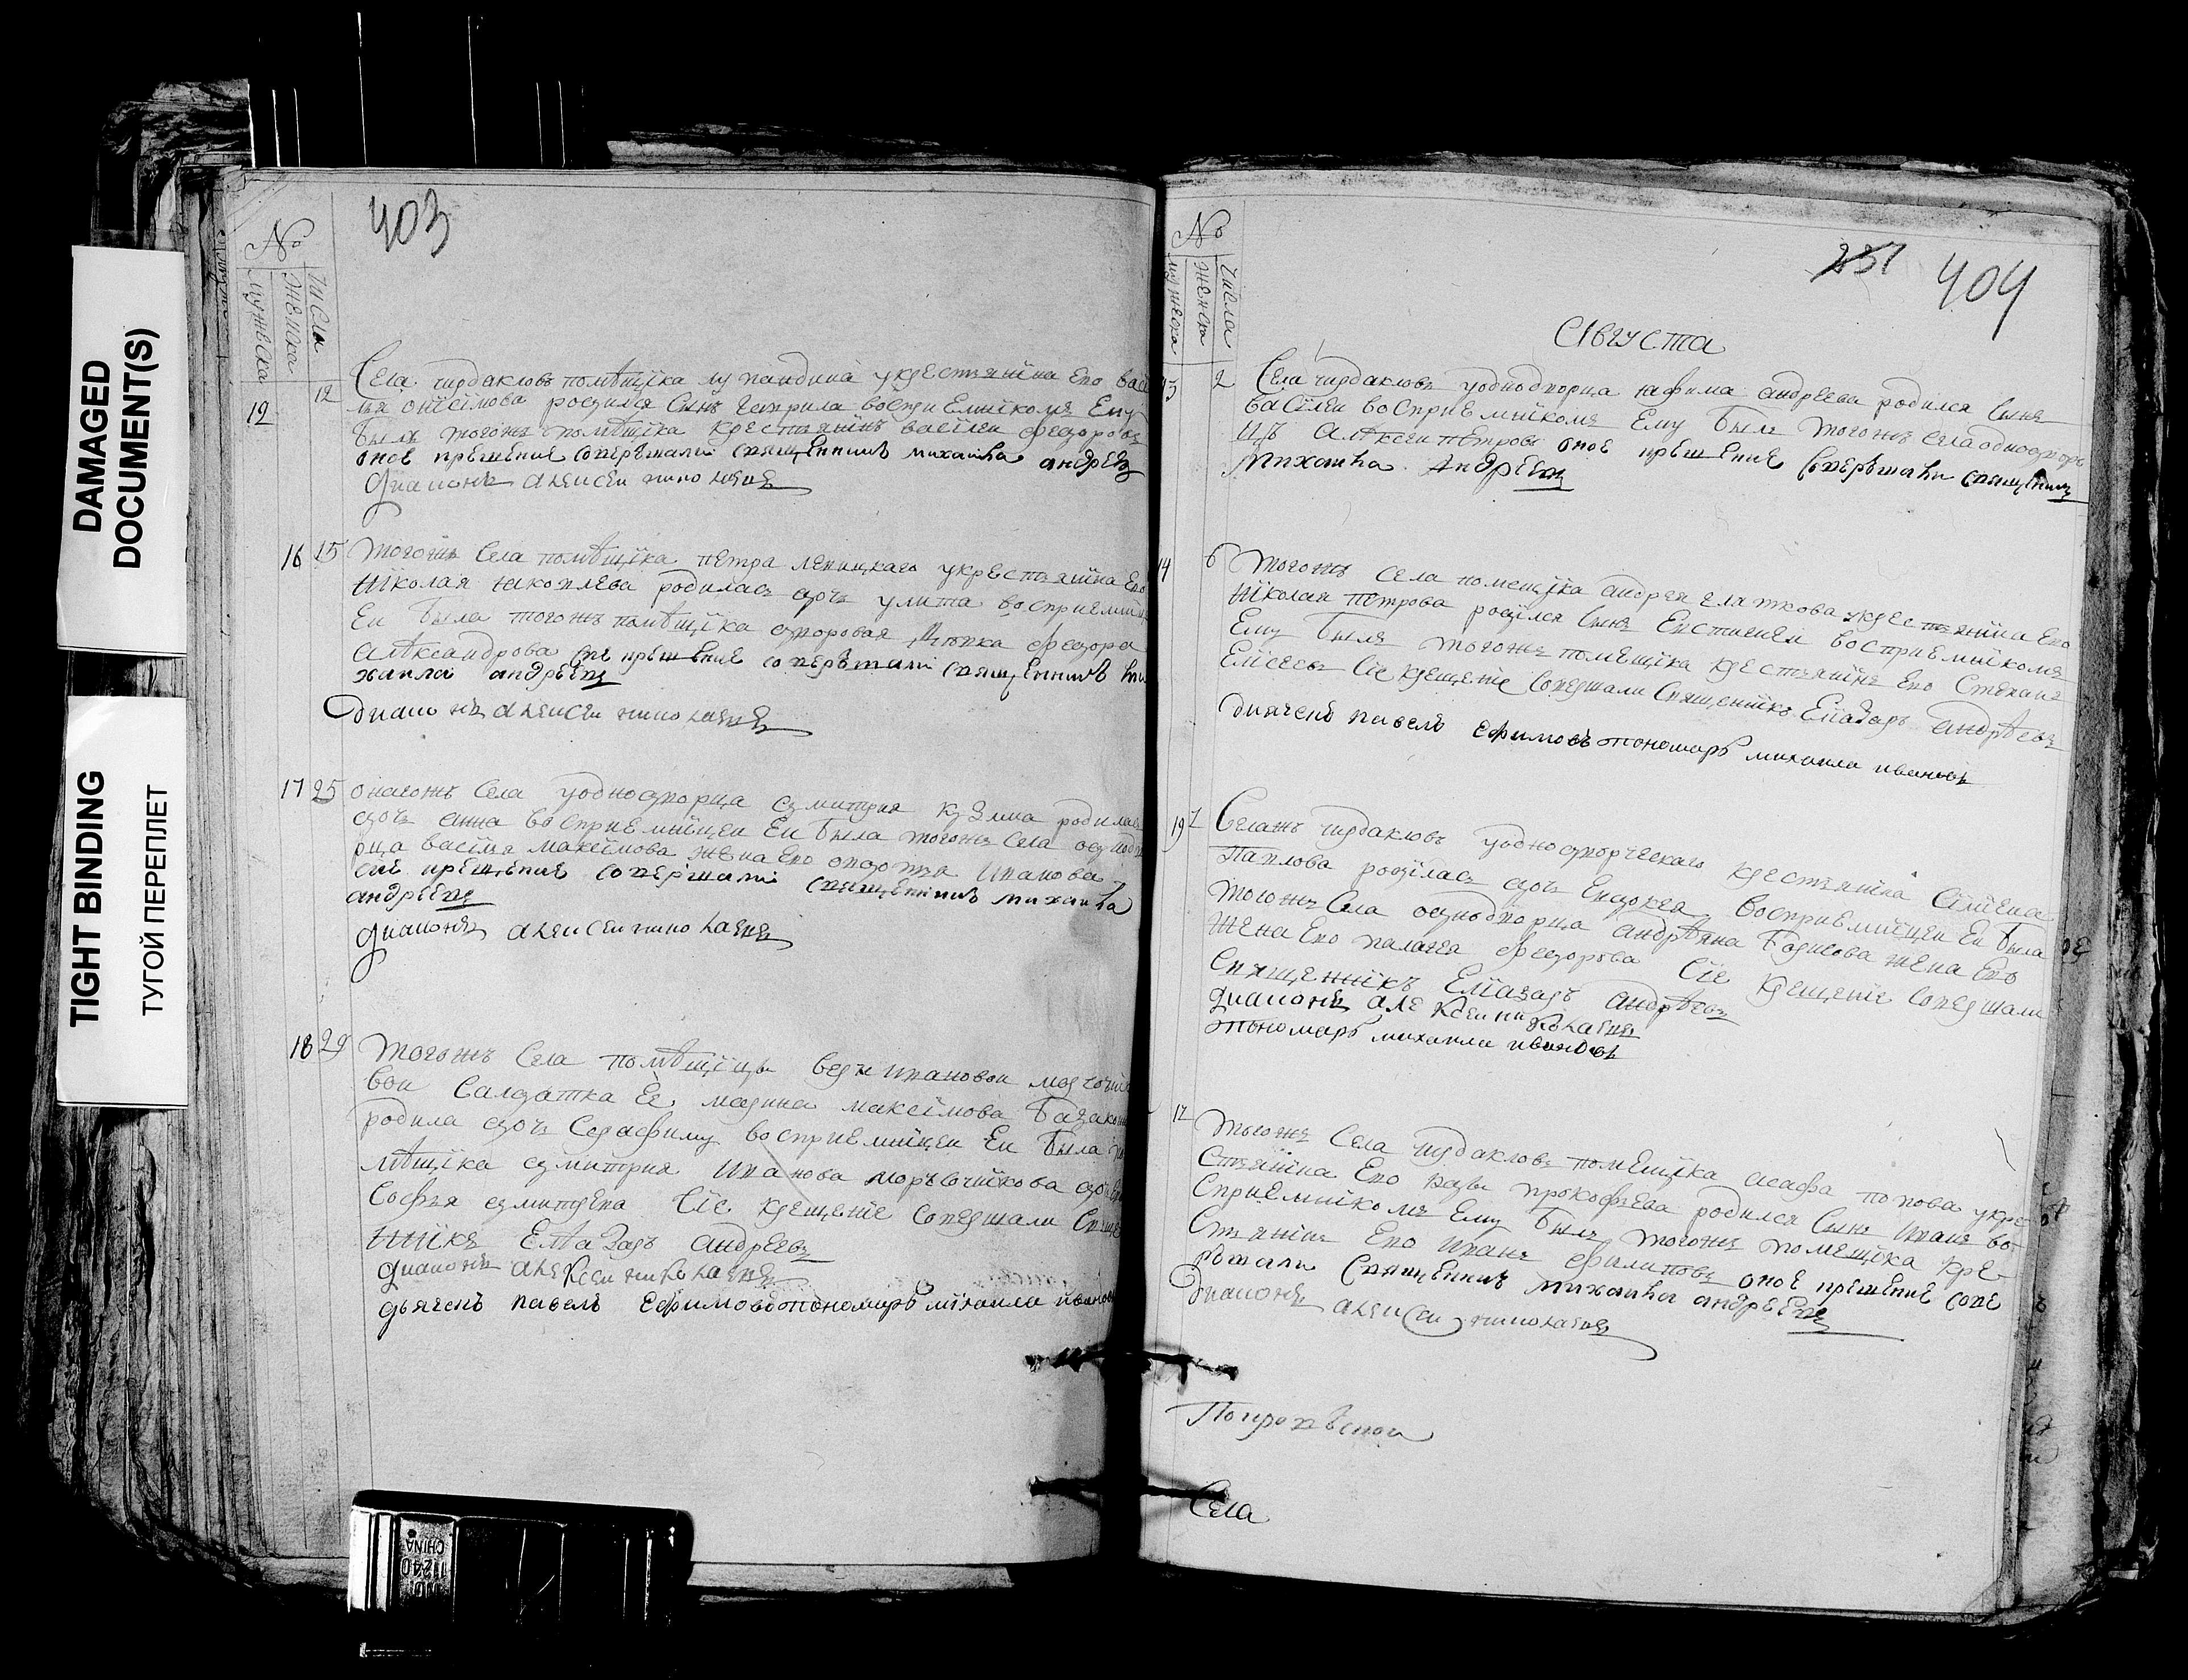 DAMAGED
DOCUMENT(S)
TIGHT BINDING
ТУГОЙ ПЕРЕПЛЕТ
403
№
мужеска
женска
числа
12 12 Села чирдаковъ помѣщїка лупандина укрестьянїна Ево васи
лья онїсїмова родился сынъ гаврила восприемнїкомъ Ему
былъ тогожъ помѣщїка крестьянїнъ васїлеи федоровъ
оное крещение совершали священникъ михаила андреевъ
диаконъ алексеи николаевъ
16 15 Тогожъ села помѣщїка петра укрестьянїна Ево
нїколая яковлева родилась дочь улита восприемни
Еи была тогожъ помѣщїка дворовая дѣвка федора
алѣксандрова сие крещение совершали священникъ ми
хаила андреевъ
диаконъ алексеи николаевъ
17 25 онагожъ села уоднодворца дмитрия кузмина родилась
дочь анна восприемнїцеи Еи была тогожъ села однодво
рца васїлья максїмова жена Ево авдотья иванова
сие крещение совершали священникъ михаила
андреевъ
диаконъ алексеи николаевъ
18 29 Тогожъ села помѣщїцы веры ивановои
вои салдатка Ее марина максїмова
родила дочь серафиму восприемнїцеи Еи была
мѣщїка дмитрия иванова дочь
софья дмитрева Сїе крещенїе совершали свяще
ннїкъ Елѣазаръ андреевъ
диаконъ алексеи николаевъ
дьячекъ павелъ Ефимовъ пономарь михаила ивановъ
№
мужеска
женска
числа
231 404
Августа
13 2 Села чирдаковъ уоднодворца Иефима андреева родился сынъ
васїлеи восприемнїкомъ Ему былъ тогожъ села однодворе
цъ алѣксеи петровъ оное крещение совершали священникъ
михаила андреевъ
14 6 Тогожъ села помещїка андрея глаткова укрестьянїна Ево
нїколая петрова родїлся сынъ Евстигнеи восприемнїкомъ
Ему былъ тогожъ помещїка крестьянїнъ Ево степанъ
Елїсеевъ Сїе крещенїе совершали священнїкъ Елїазаръ андрѣевъ
диячекъ павелъ Ефимовъ пономарь михаила ивановъ
19 7 Селажъ чирдаковъ уоднодворческаго крестьянїна
павлова родїлась дочь Евдокея восприемнїцеи Еи была
тогожъ села однодворца андрѣяна борисова жена Ево
жена Ево палагея федорова Сїе крещенїе совершали
священнїкъ Елїазаръ андрѣевъ
диаконъ алексеи николаевъ
пономарь михаила ивановъ
12 Тогожъ села чирдаковъ помещїка асафа попова укре
стьянїна Ево прокофьева родился сынъ иванъ во
сприемнїкомъ Ему былъ тогожъ помещїка кре
стьянїнъ Ево иванъ филиповъ оное крещение сове
ршали священникъ михаила андреевъ
диаконъ алексеи николаевъ
Села